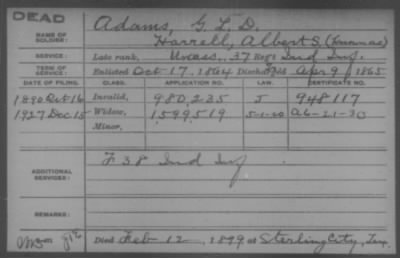 DEAD
NAME OF SOLDIER: Adams, G. L. D.
Harrell, Albert S. (True name)
SERVICE: Late rank, Unass., 37 Reg't Ind Inf.
TERM OF SERVICE: Enlisted Oct 17, 1864 Discharged Apr 9, 1865
DATE OF FILING. CLASS. APPLICATION NO. LAW. CERTIFICATE NO.
1890 Oct 16 Invalid, 980,235 J 948117
1927 Dec 15 Widow, 1599519 5-1-20 A6-21-30
Minor,
ADDITIONAL SERVICES: F 38 Ind Inf
REMARKS:
Died Feb 12, 1899 at Sterling City, Tex.